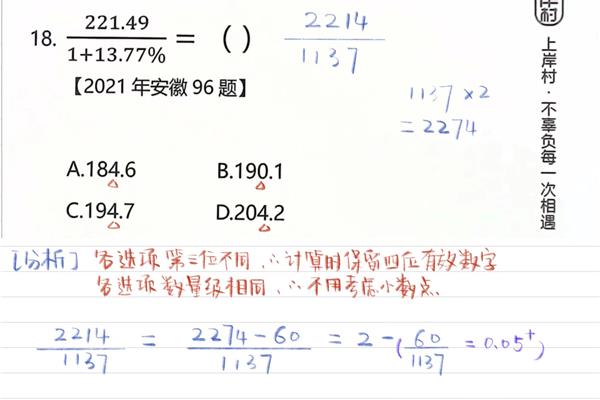 18. 221.49/1+13.77% = ( )
2214/1137
【2021年安徽96题】
1137×2
=2274
A.184.6 B.190.1
C.194.7 D.204.2
村
上岸村·不辜负每一次相遇
[分析] 各选项第三位不同,∴计算时保留四位有效数字
各选项数量级相同,∴不用考虑小数点.
2214/1137 = 2274-60/1137 = 2-(60/1137 = 0.05⁺)